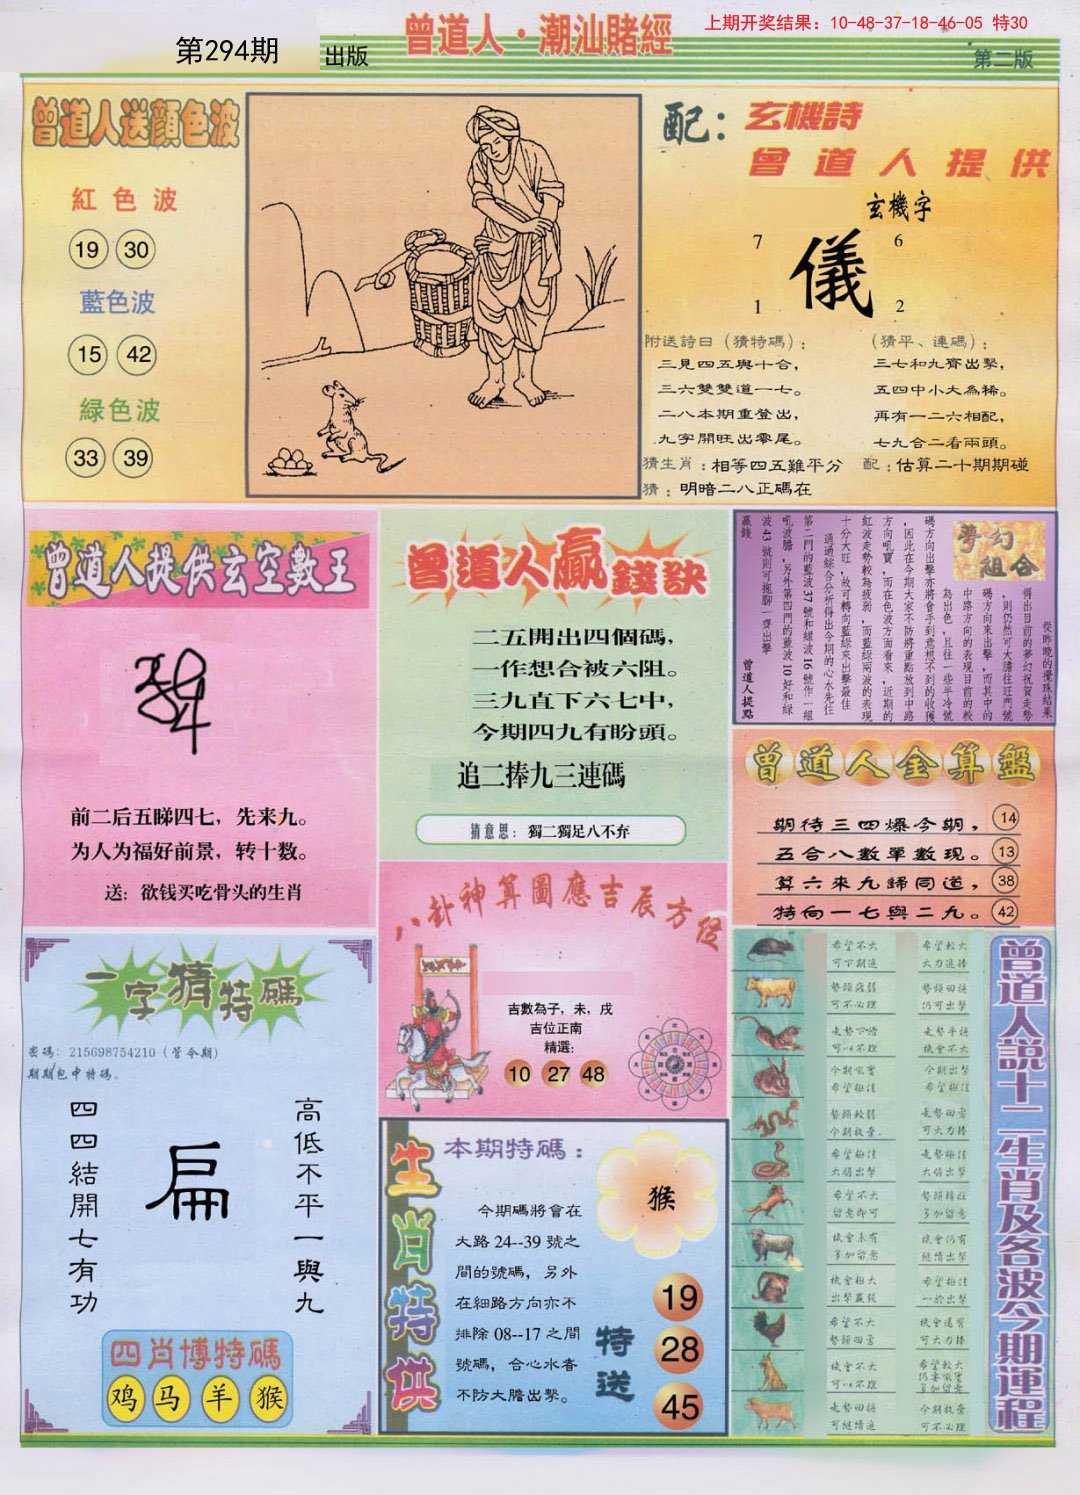 第294期
出版
曾道人·潮汕賭經
上期开奖结果：10-48-37-18-46-05 特30
第二版
曾道人送顏色波
紅色波
19 30
藍色波
15 42
緑色波
33 39
配：玄機詩
曾道人提供
玄機字
7 6
儀
1 2
附送詩曰（猜特碼）：
三見四五與十合，
三六雙雙道一七。
二八本期重登出，
九字開旺出零尾。
（猜平、連碼）：
三七和九齊出擊，
五四中小大為稀。
再有一二六相配，
七九合二看兩頭。
猜生肖：相等四五難平分
配：估算二十期期碰
猜：明暗二八正碼在
曾道人提供玄空數王
前二后五睇四七，先来九。
为人为福好前景，转十数。
送：欲钱买吃骨头的生肖
曾道人贏錢訣
二五開出四個碼，
一作想合被六阻。
三九直下六七中，
今期四九有盼頭。
追二捧九三連碼
猜意思：獨二獨足八不弃
夢幻組合
從昨晚的攪珠結果
得出目前的夢幻祝賀走勢
，則仍然可大膽往旺門號
碼方向來出擊，而其中的
中路方向的表現目前的較
為出色，且往一些半冷號
碼方向出擊亦將會手到意想不到的收獲
，因此在今期大家不防將重點放到中路
方向吼寶，而在色波方面看來，近期的
紅波走勢較為疲弱，而藍緑兩波的表現
十分大旺，故可轉向藍緑來出擊最佳
通過綜合分析得出今期的心水先往
第二門的藍波37號和緑波16號作一組
吼波膽，另外第四門的藍波10好和緑
波43號則可拖腳一齊出擊
贏錢
曾道人提點
曾道人金算盤
期待三四爆今期， 14
五合八數單數現。 13
算六來九歸同道， 38
特向一七與二九。 42
八卦神算圖應吉辰方位
吉數為子，未，戌
吉位正南
精選:
10 27 48
一字猜特碼
密碼：215698754210（管今期）
期期包中特碼、
高低不平一與九
扁
四四結開七有功
四肖博特碼
鸡 马 羊 猴
生肖特供
本期特碼：
今期碼將會在
大路24--39號之
間的號碼，另外
在細路方向亦不
排除08--17之間
號碼，合心水者
不防大膽出擊。
猴
特送
19
28
45
曾道人説十二生肖及各波今期運程
希望不大
可下期追
希望較大
大力追捧
勢頭疲弱
可不必理
勢頭回穩
仍可出擊
走勢平穩
機會不大
今期吼實
希望極佳
今期出擊
希望極佳
勢頭較弱
今期放棄
走勢回勇
可大力捧
希望極佳
大膽出擊
走勢極佳
大膽出擊
希望不大
留意即可
多加留意
機會未有
多加留意
機會仍有
繼續出擊
機會極大
出擊贏錢
希望極佳
一於出擊
希望不大
勢頭回勇
機會還有
可大力捧
機會不大
可以不理
希望較大
多加留意
走勢回穩
可繼續追
今期放棄
可不必理